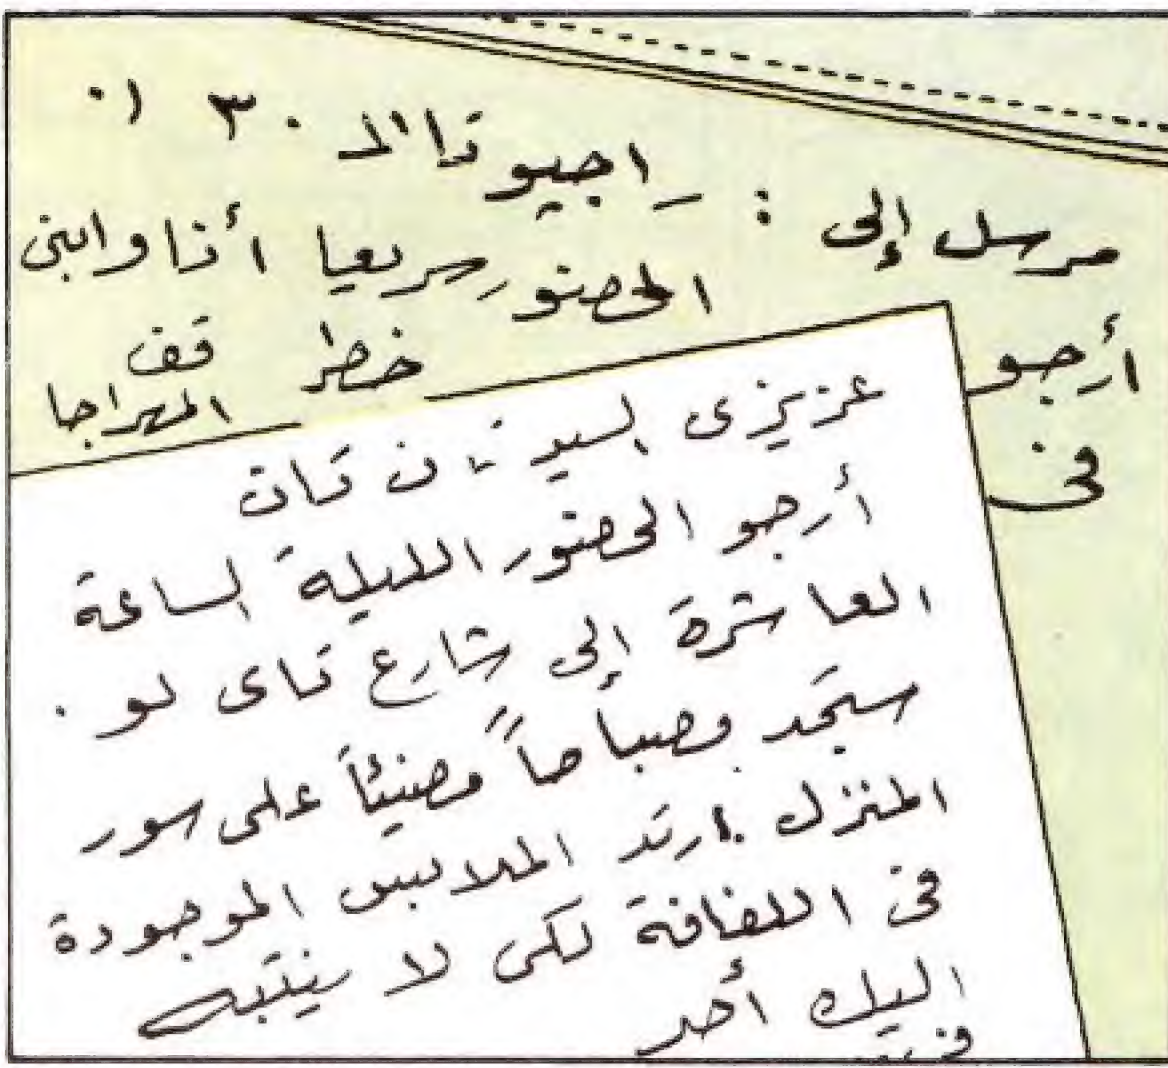 مرسل إلى : راجيو تاالد ٣٠ ١٠
أرجو الحضور سريعا أنا وابنى
فى خطر قف
المهراجا
عزيزى السيد تان تان
أرجو الحضور الليلة الساعة
العاشرة إلى شارع تاى لو .
ستجد مصباحاً مضيئاً على سور
المنزل . ارتد الملابس الموجودة
فى اللفافة لكى لا ينتبه
اليك أحد